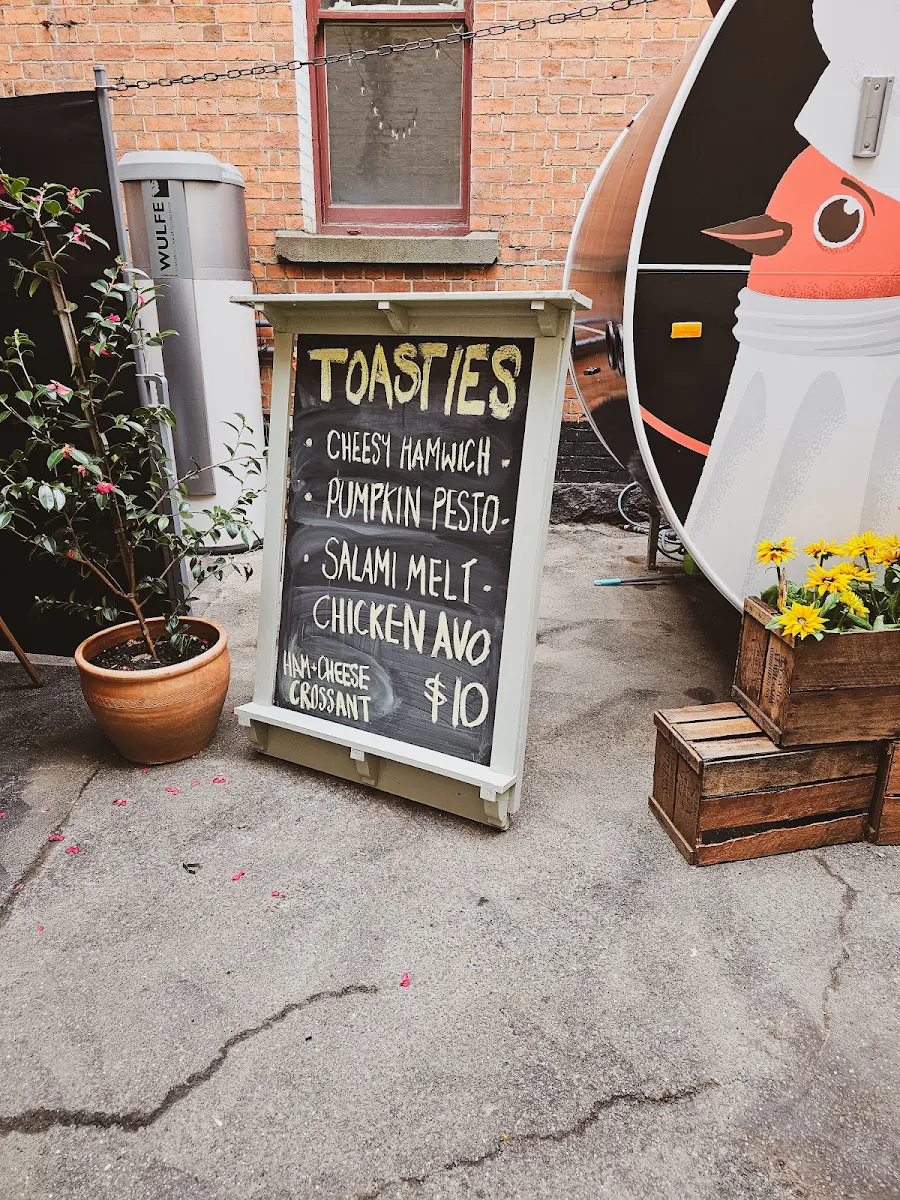 WULFE
TOASTIES
• CHEESY HAMWICH •
• PUMPKIN PESTO •
• SALAMI MELT •
CHICKEN AVO
HAM+CHEESE
CROSSANT
$10